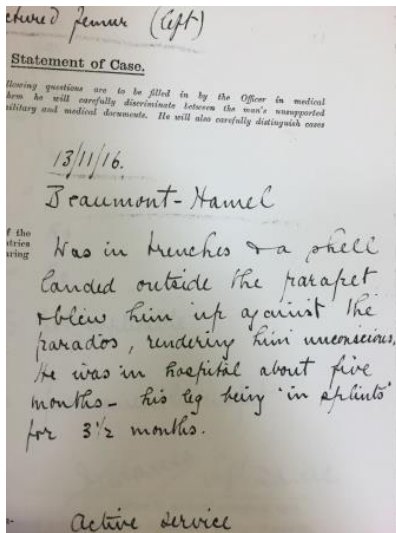 ctured Femur (left)
Statement of Case.
llowing questions are to be filled in by the Officer in medical
hem he will carefully discriminate between the man's unsupported
military and medical documents. He will also carefully distinguish cases
13/11/16.
Beaumont-Hamel
f the
ntries
aring
Was in trenches & a shell
landed outside the parapet
& blew him up against the
parados, rendering him unconscious.
He was in hospital about five
months - his leg being 'in splints'
for 3½ months.
Active service